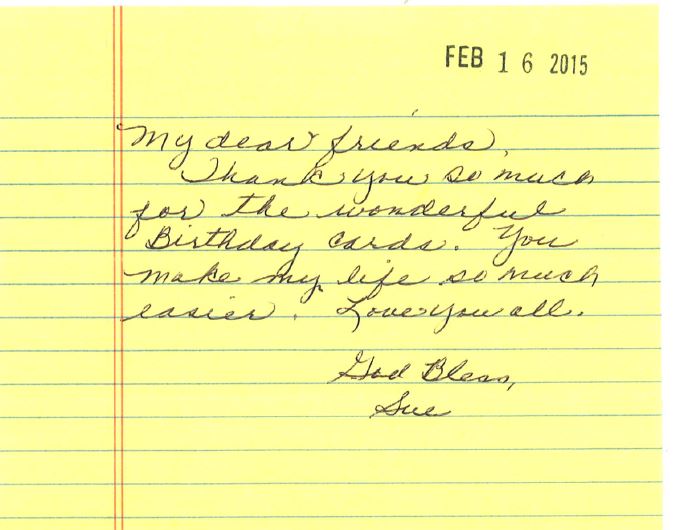 FEB 16 2015
My dear friends,
Thank you so much
for the wonderful
Birthday cards. You
make my life so much
easier. Love you all.
God Bless,
Sue